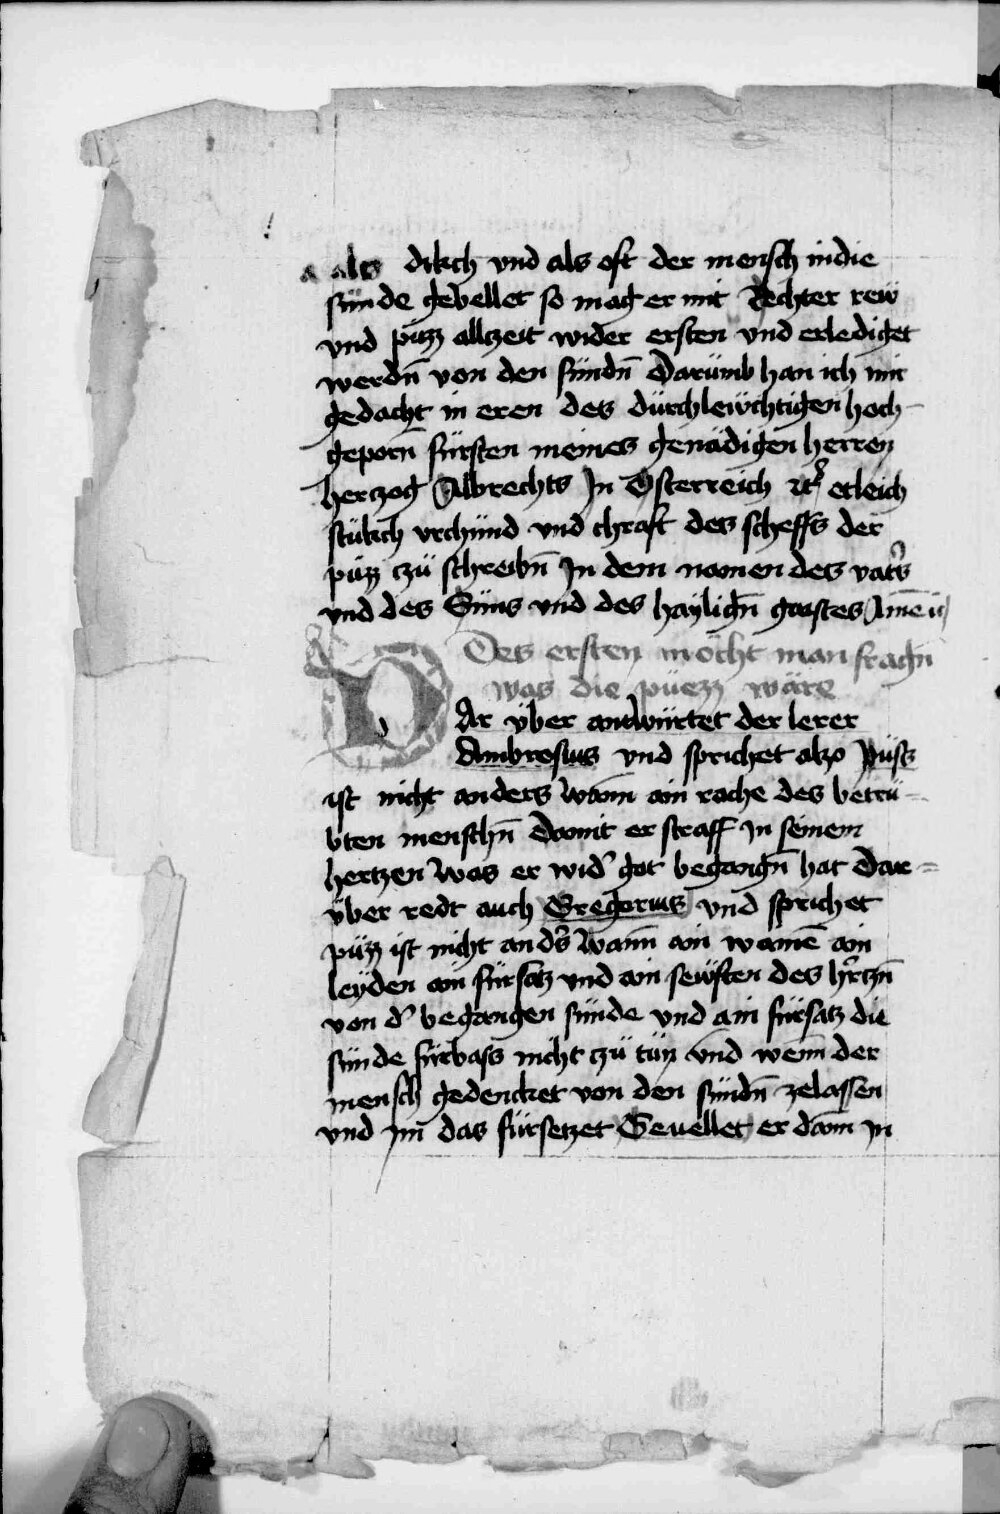 als dikch vnd als oft der mensch in die
sünde gevellet so mag er mit Rechter rew
vnd püzz allzeit wider ersten vnd erlediget
werdn̄ von den sündn̄ Darümb han ich mir
gedacht in eren des dürchlewchtigen hoch-
geporn̄ fürsten meines genädigen herren
herczog Albrechts In Osterreich etleich
stükch vrchünd vnd chraft des scheffs der
püzz czü schreibn̄ In dem namen des vat's
vnd des Süns vnd des haylign̄ gaistes Amē
Des ersten möcht man fragn̄
was die püezz wäre
DAr über antwürtet der lerer
Ambrosius vnd sprichet also Püss
ist nicht anders wann ain rache des betrü-
bten menschn̄ Damit er straff In seinem
hertzen was er wid' got begangn̄ hat Dar=
über redt auch Gregorius vnd sprichet
püzz ist nicht and's wann ain wainē ain
leyden ain fürsatz vnd ain sewften des h'rczn̄
von d' begangen sünde vnd ain fürsatz die
sünde fürbass nicht czü tün vnd wenn der
mensch gedencket von den sündn̄ zelassen
vnd Im das fürsetzet Gevellet er dann In